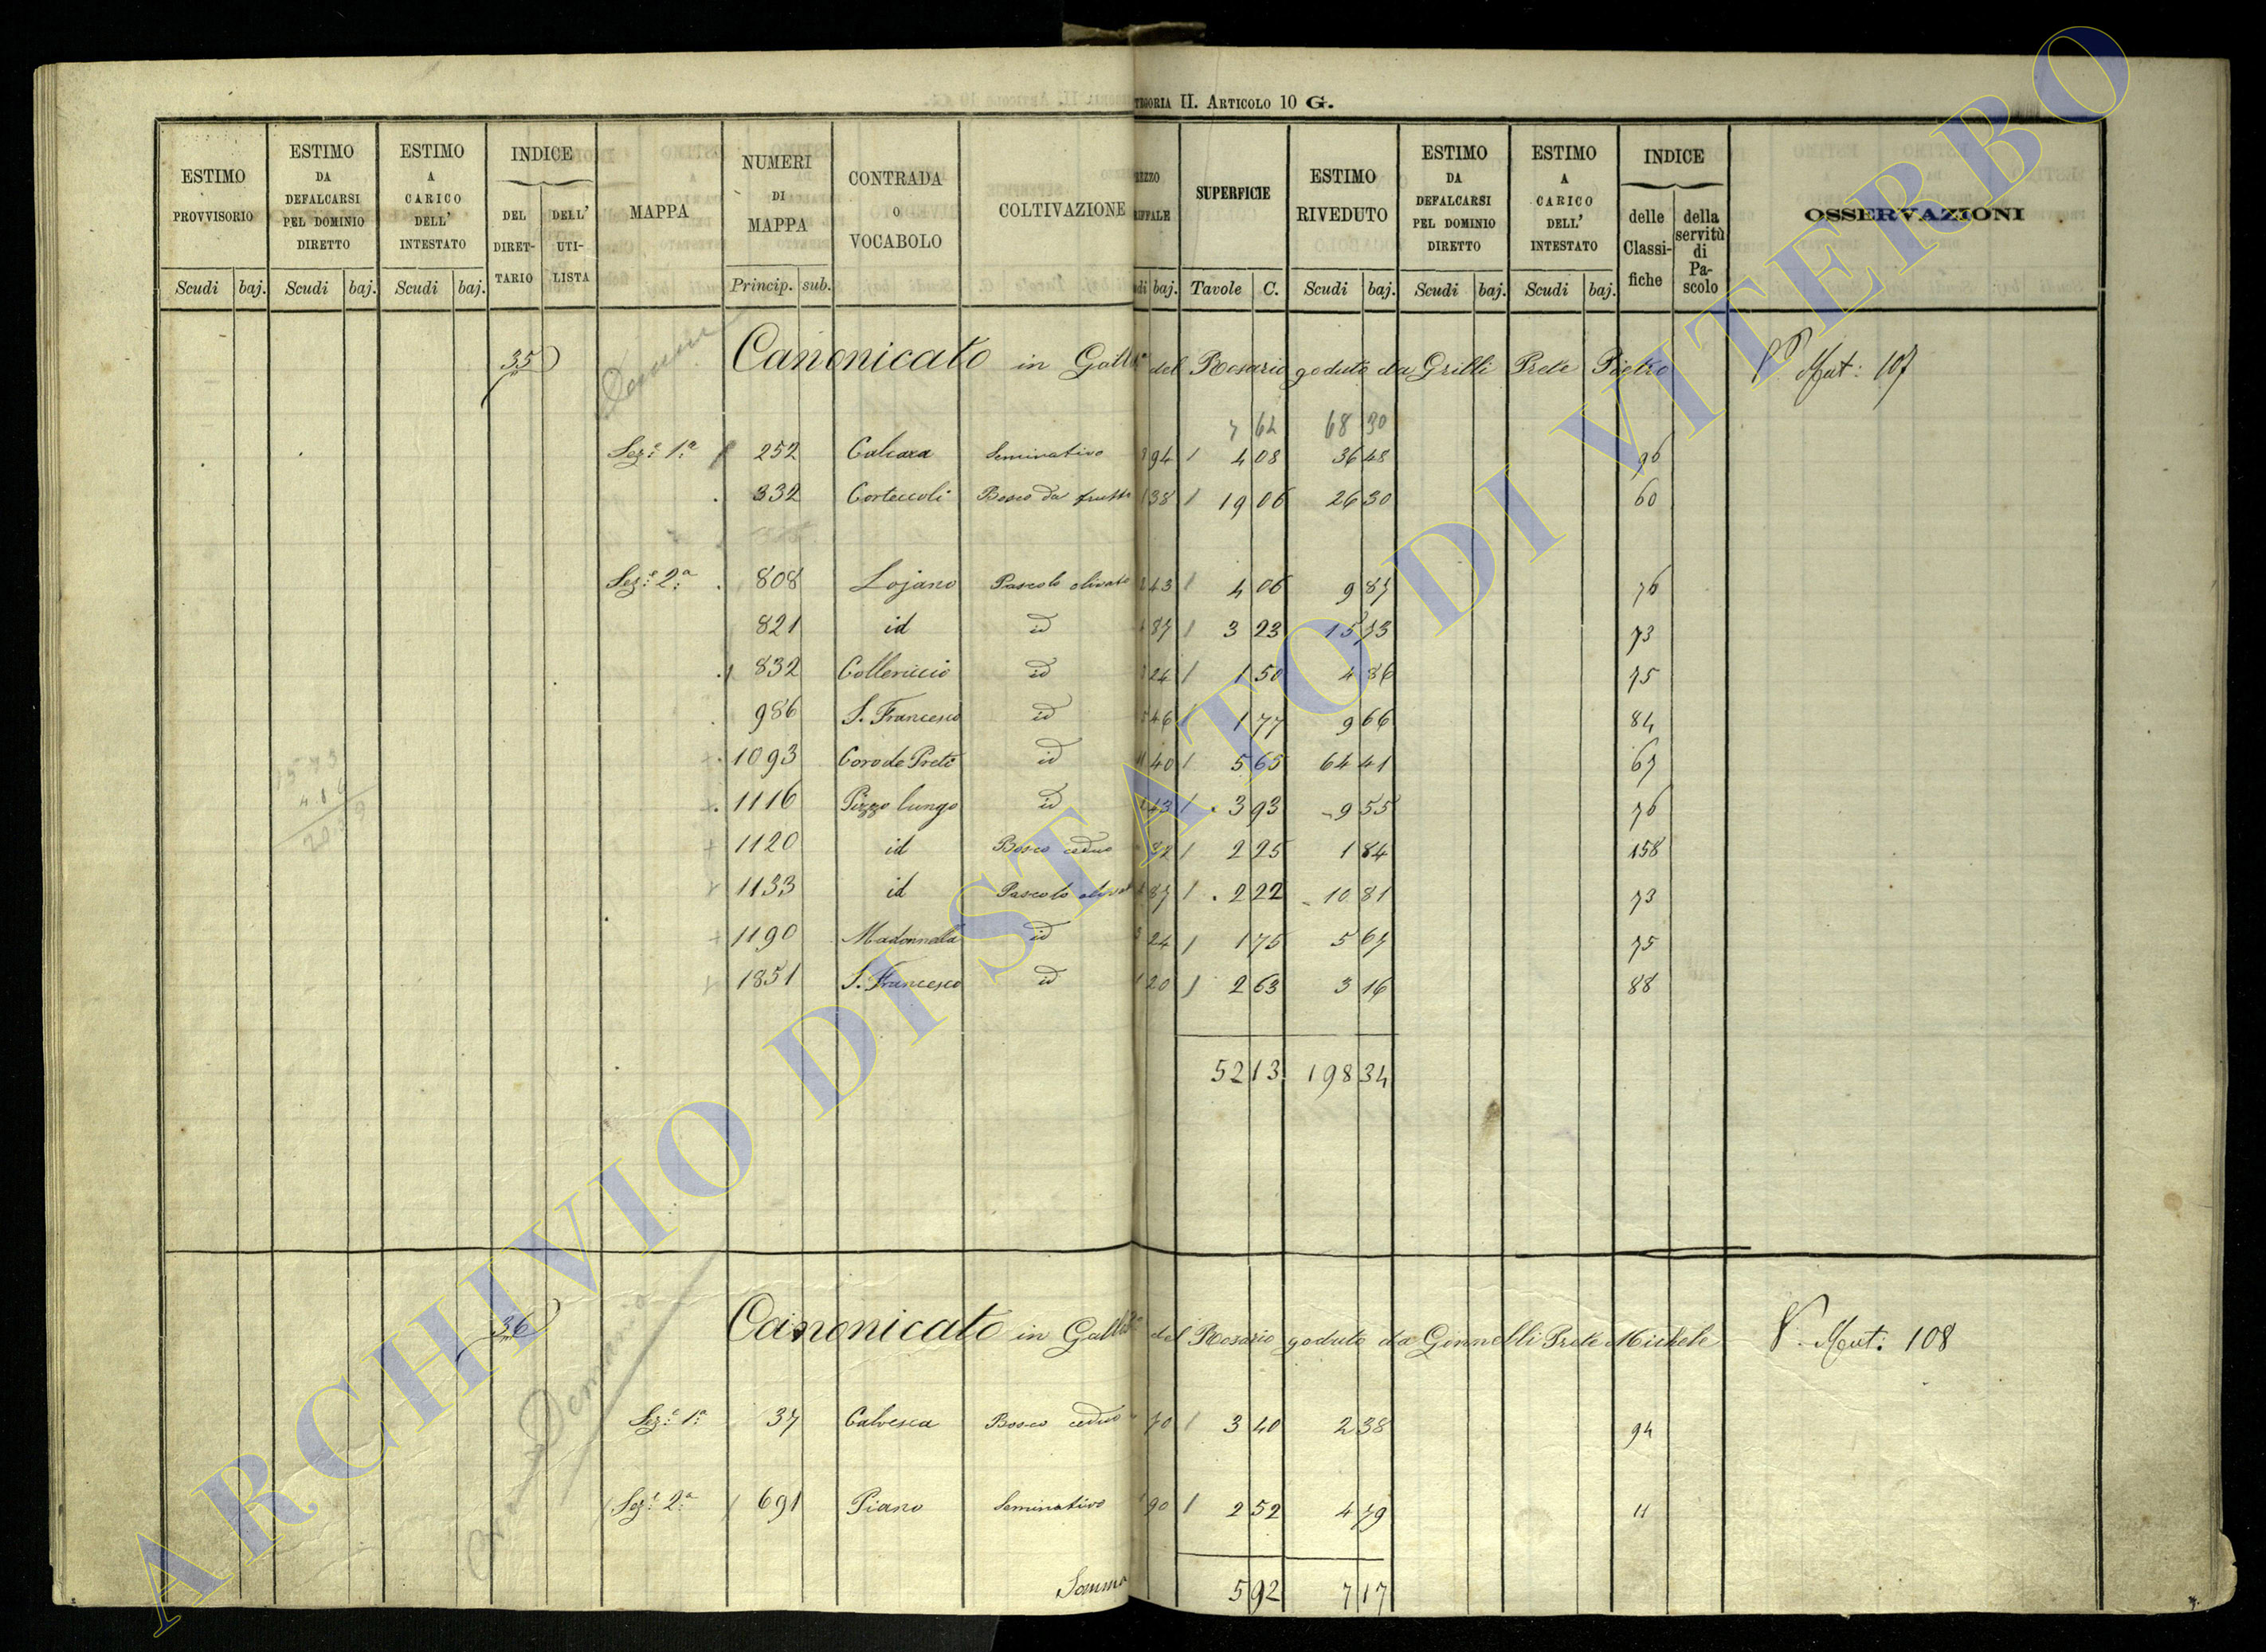 TEGORIA II. ARTICOLO 10 G.
ESTIMO PROVVISORIO | ESTIMO DA DEFALCARSI PEL DOMINIO DIRETTO | ESTIMO A CARICO DELL' INTESTATO | INDICE | MAPPA | NUMERI DI MAPPA | CONTRADA O VOCABOLO | COLTIVAZIONE | REZZO RIFFALE | SUPERFICIE | ESTIMO RIVEDUTO | ESTIMO DA DEFALCARSI PEL DOMINIO DIRETTO | ESTIMO A CARICO DELL' INTESTATO | INDICE | OSSERVAZIONI
DEL DIRETTARIO | DELL' UTILISTA | delle Classifiche | della servitù di Pascolo
Scudi baj. Scudi baj. Scudi baj. Princip. sub. di baj. Tavole C. Scudi baj. Scudi baj. Scudi baj.
35 Canonicato in Gall del Rosario goduto da Grilli Prete Pietro Mut: 107
7 64 68 30
Sez: 1ª 252 Calcara Seminativo 94 4 08 36 48 96
332 Corteccoli Bosco da frutto 1 38 19 06 26 30 60
Sez: 2ª 808 Lojano Pascolo olivato 2 43 4 06 9 87 76
821 id id 4 87 3 23 15 73 73
832 Colleruccio id 3 24 1 50 4 86 75
986 S. Francesco id 5 46 1 77 9 66 84
15 73
1093 Coro de Preti id 11 40 5 65 64 41 67
4.86
1116 Pizzo lungo id 2 43 3 93 9 55 76
1120 id Bosco ceduo 82 2 25 1 84 158
1133 id Pascolo olivat 4 87 2 22 10 81 73
1190 Madonnella id 3 24 1 75 5 67 75
1851 S. Francesco id 1 20 2 63 3 16 88
52 13 198 34
36 Canonicato in Gall del Rosario goduto da Gennelli Prete Michele Mut: 108
Demanio
Sez: 1ª 37 Calvesca Bosco ceduo 70 3 40 2 38 94
Sez: 2ª 691 Piano Seminativo 1 90 2 52 4 79 11
Somma 5 92 7 17
ARCHIVIO DI STATO DI VITERBO